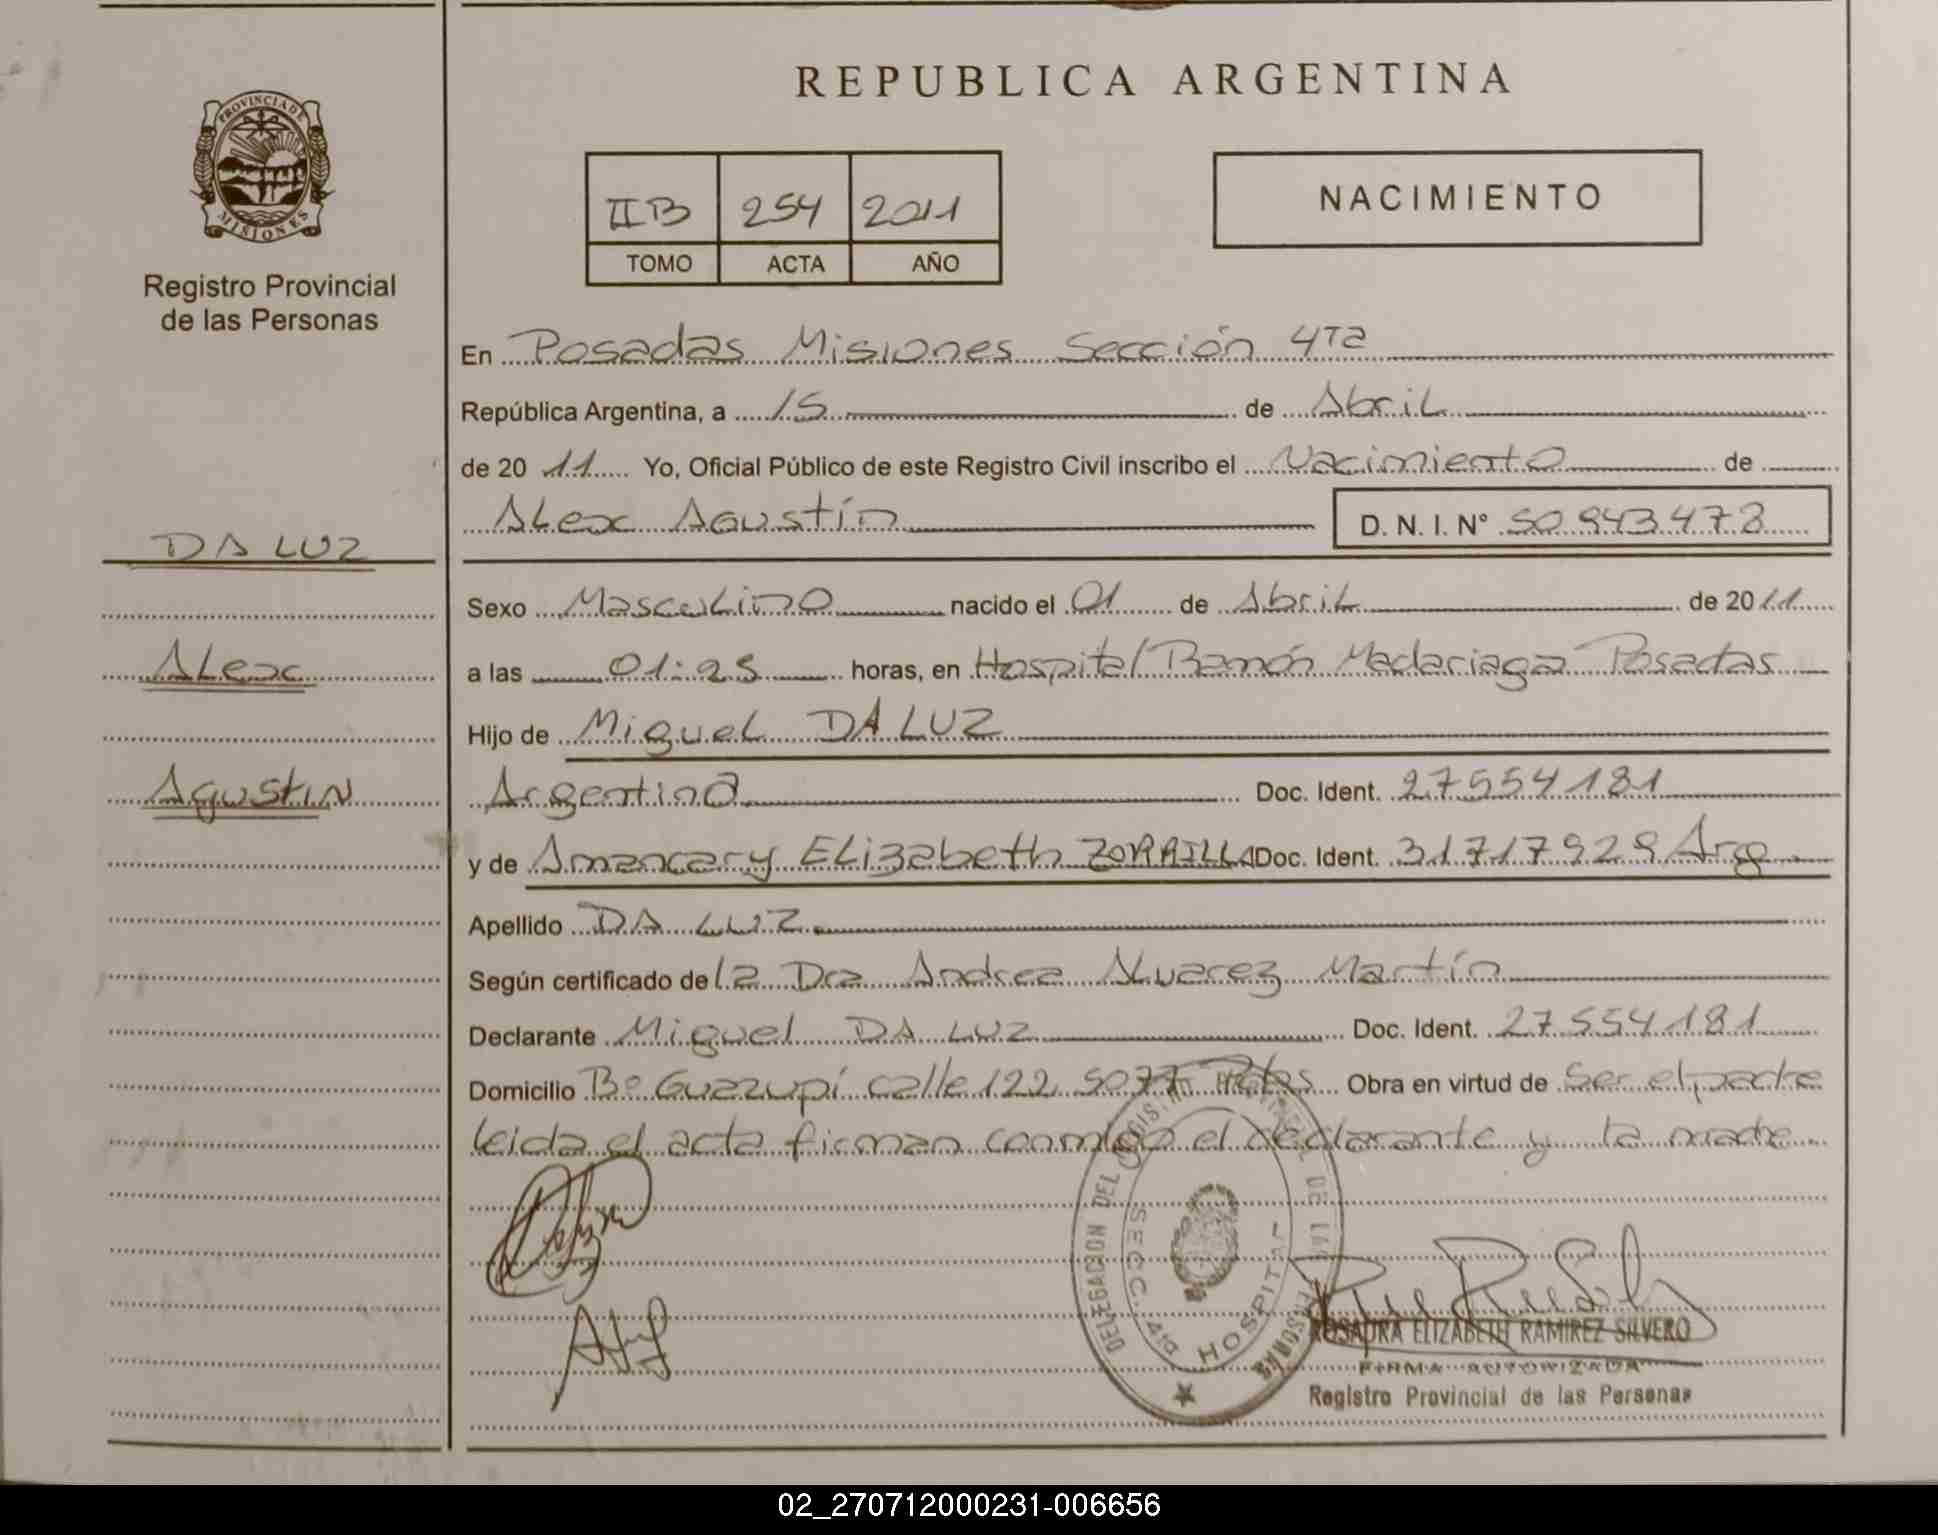 REPUBLICA ARGENTINA
PROVINCIA DE
MISIONES
Registro Provincial
de las Personas
IIB 254 2011
TOMO ACTA AÑO
NACIMIENTO
En Posadas Misiones Sección 4ta
República Argentina, a 15 de Abril
de 2011 Yo, Oficial Público de este Registro Civil inscribo el Nacimiento de
Alex Agustín D. N. I. N° 50.943.473
DA LUZ
Alex
Agustin
Sexo Masculino nacido el 01 de Abril de 2011
a las 01:25 horas, en Hospital Ramón Madariaga Posadas
Hijo de Miguel DA LUZ
Argentina Doc. Ident. 27554181
y de Amancary Elizabeth ZORRILLA Doc. Ident. 31717929 Arg
Apellido DA LUZ
Según certificado de la Dra Andrea Alvarez Martín
Declarante Miguel DA LUZ Doc. Ident. 27554181
Domicilio Bº Guazupí calle 122 5077 Pdas Obra en virtud de Ser el padre
leida el acta firman conmigo el declarante y la madre
DELEGACION DEL REGISTRO PROVINCIAL DE LAS PERSONAS
SECC. 4ta HOSPITAL
ROSAURA ELIZABETH RAMIREZ SILVERO
FIRMA AUTORIZADA
Registro Provincial de las Personas
02_270712000231-006656